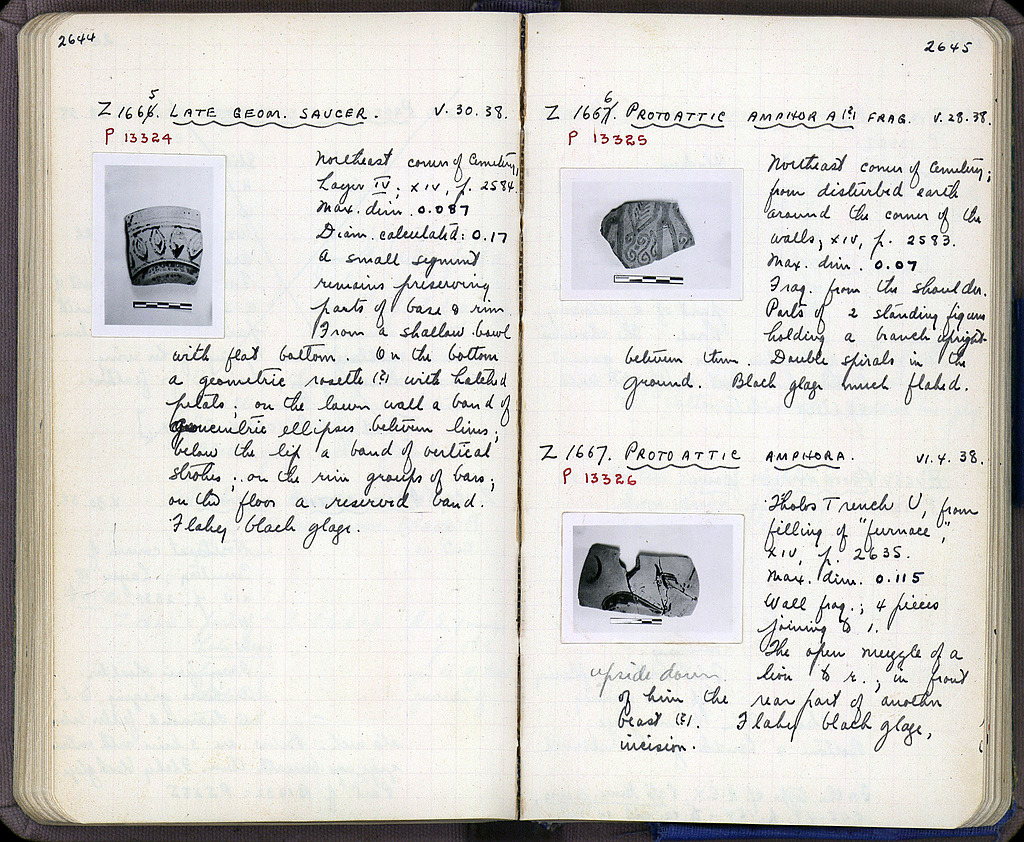 2644
5
Z 1666. LATE GEOM. SAUCER. V.30.38.
P 13324
Northeast corner of Cemetery,
Layer IV; XIV, p. 2584.
Max. dim. 0.087
Diam. calculated: 0.17
A small segment
remains preserving
parts of base & rim.
From a shallow bowl
with flat bottom. On the bottom
a geometric rosette (?) with hatched
petals; on the lower wall a band of
concentric ellipses between lines;
below the lip a band of vertical
strokes; on the rim groups of bars;
on the floor a reserved band.
Flakey black glaze.
2645
6
Z 1667. PROTOATTIC AMPHORA(?) FRAG. V.28.38.
P 13325
Northeast corner of Cemetery;
from disturbed earth
around the corner of the
walls; XIV, p. 2583.
Max. dim. 0.07
Frag. from the shoulder.
Parts of 2 standing figures
holding a branch upright
between them. Double spirals in the
ground. Black glaze much flaked.
Z 1667. PROTOATTIC AMPHORA. VI.4.38.
P 13326
Tholos Trench U, from
filling of "furnace",
XIV, p. 2635.
Max. dim. 0.115
Wall frag.; 4 pieces
joining to 1.
The open muzzle of a
upside down
lion to r.; in front
of him the rear part of another
beast (?). Flakey black glaze,
incision.